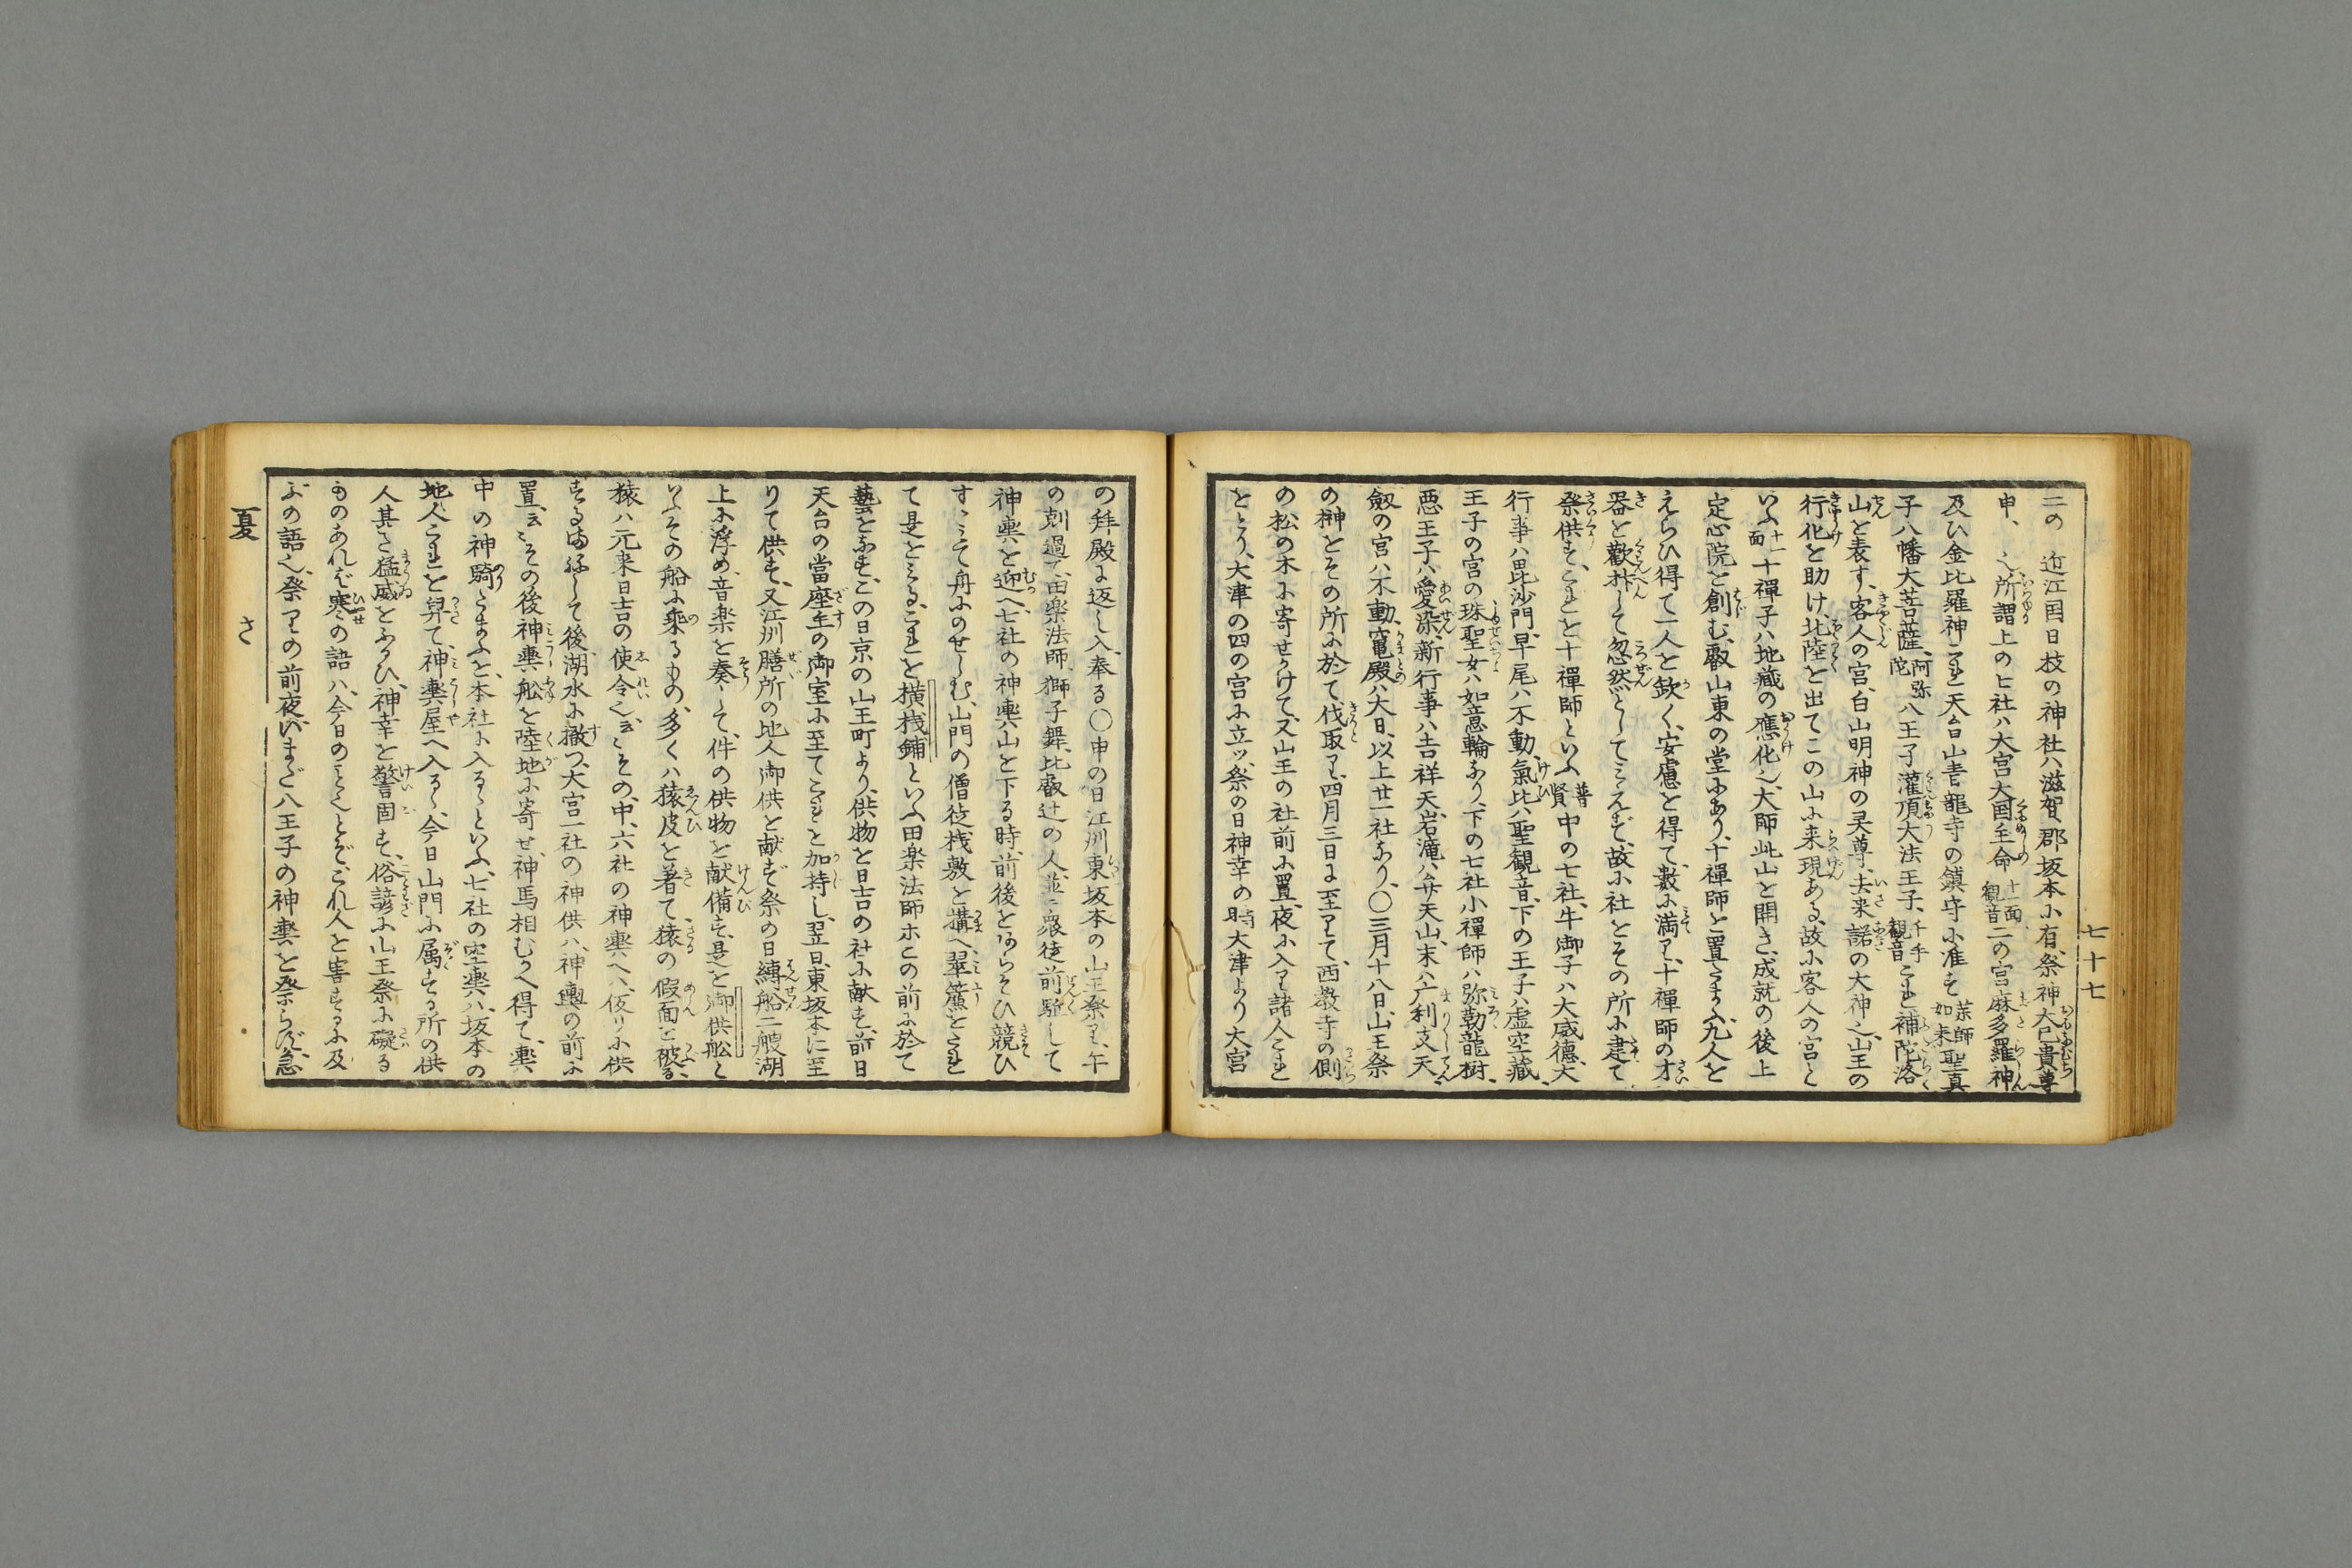 七十七
二の　近江国日枝の神社ハ滋賀郡坂本に有、祭神大己貴尊
申、　也所謂上の七社ハ大宮大国主命十一面観音二の宮麻多羅神
及ひ金比羅神これ天台山青龍寺の鎮守に准す薬師如来聖真
子八幡大菩薩、阿弥陀八王子灌頂大法王子、千手観音これ補陀洛
山を表す、客人の宮、白山明神の灵尊、去来諾の大神也、山王の
行化を助け、北陸を出てこの山に来現ある、故に客人の宮と
いふ十一面十禪子ハ地藏の應化也、大師此山を開き、成就の後上
定心院を創む、叡山東の堂にあり、十禪師を置たまふ、九人を
えらひ得て一人を欽く、安慮を得て、數に満り、十禪師の才
器を歡抃して忽然としてみえず、故に社をその所に建て
祭供す、これを十禪師といふ普賢中の七社、牛御子ハ大威徳、大
行事ハ毘沙門、早尾ハ不動、氣比ハ聖観音、下の王子ハ虚空藏、
王子の宮の珠聖女ハ如意輪なり、下の七社小禪師ハ弥勒龍樹、
悪王子ハ愛染、新行事ハ吉祥天、岩滝ハ弁天、山末ハ广利支天
劔の宮ハ不動、竃殿ハ大日、以上廿一社なり、〇三月十八日、山王祭
の榊をその所に於て伐取り、四月三日に至りて、西教寺の側
の松の木に寄せかけて、又山王の社前に置、夜に入り諸人これ
をとり、大津の四の宮に立ッ、祭の日神幸の時大津より大宮
の拜殿に返し入、奉る〇申の日江洲東坂本の山王祭り、午
の刻過て、田楽法師、獅子舞、比叡辻の人、並ニ衆徒前駈して
神輿を迎へ、七社の神輿山を下る時、前後をあらそひ競ひ
すゝみて舟にのせしむ、山門の僧徒桟敷を搆へ、翠簾をたれ
て是をみる、これを横桟鋪といふ田楽法師ホこの前に於て
藝をなす、この日京の山王町より、供物を日吉の社に献す、前日
天台の當座主の御室に至てこれを加持し、翌日、東坂本に至
りて供す、又江州膳所の地人御供を献ず、祭の日縛船二艘湖
上に浮め、音楽を奏して、件の供物を献備す、是を御供舩と
いふその船に乗るもの、多くハ猿皮を著て、猿の假面を被る、
猿ハ元来日吉の使令也、云ミその、中、六社の神輿へハ、仮リに供
するまねして後、湖水に撤つ、大宮一社の神供ハ、神輿の前に
置、云ミその後神輿舩を陸地に寄せ、神馬相むかへ得て、輿
中の神騎たまふと、本社に入るゝといふ、七社の空輿ハ、坂本の
地人これを舁て、神輿屋へ入るゝ、今日山門に属する所の供
人甚さ猛威をふるひ、神幸を警固す、俗諺に山王祭に礙る
ものあれバ、寒の語ハ、今日のことくとぞ、これ人を害するに及
ぶの語也、祭りの前夜いまだ八王子の神輿を祭らず、急
夏　さ